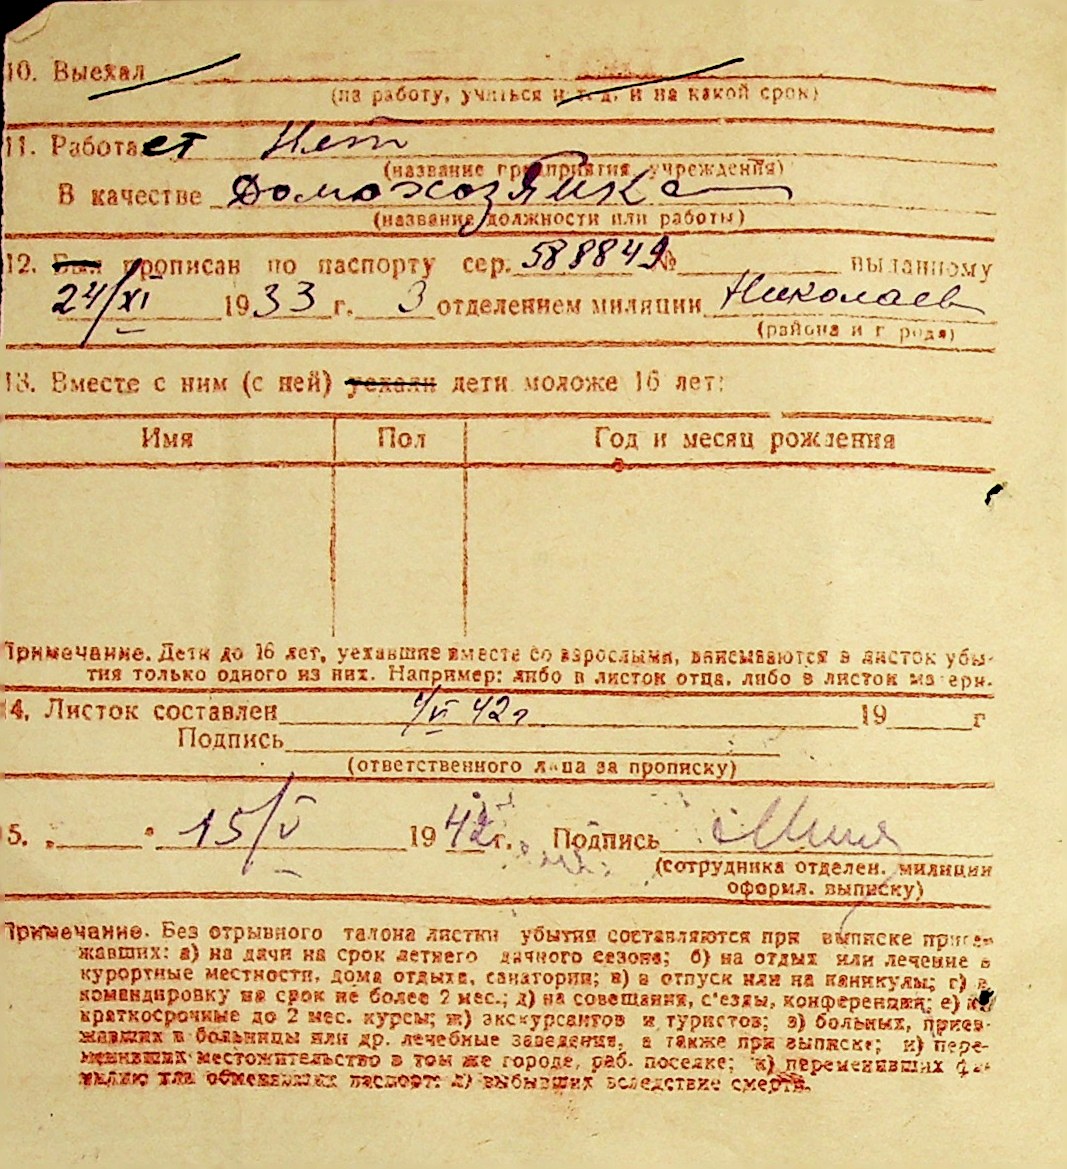 10. Выехал
(на работу, учиться и т. д. и на какой срок)
11. Работает Нет
(название предприятия, учреждения)
В качестве Домохозяйка
(название должности или работы)
12. Был прописан по паспорту сер. 588849 № выданному
24/XI 1933 г. 3 отделением милиции Николаев
(района и города)
13. Вместе с ним (с ней) уехали дети моложе 16 лет:
Имя Пол Год и месяц рождения
Примечание. Дети до 16 лет, уехавшие вместе со взрослыми, вписываются в листок убы-
тия только одного из них. Например: либо в листок отца, либо в листок матери.
14. Листок составлен 4/VI 42 г 19 г
Подпись
(ответственного лица за прописку)
15. " " 15/V 1942 г. Подпись
(сотрудника отделен. милиции
оформл. выписку)
Примечание. Без отрывного талона листки убытия составляются при выписке приез-
жавших: а) на дачи на срок летнего дачного сезона; б) на отдых или лечение в
курортные местности, дома отдыха, санатории; в) в отпуск или на каникулы; г) в
командировку на срок не более 2 мес.; д) на совещания, с'езды, конференции; е) на
краткосрочные до 2 мес. курсы; ж) экскурсантов и туристов; з) больных, приез-
жавших в больницы или др. лечебные заведения, а также при выписке; и) пере-
менивших местожительство в том же городе, раб. поселке; к) переменивших фа-
милию или обменявших паспорт; л) выбывших вследствие смерти.